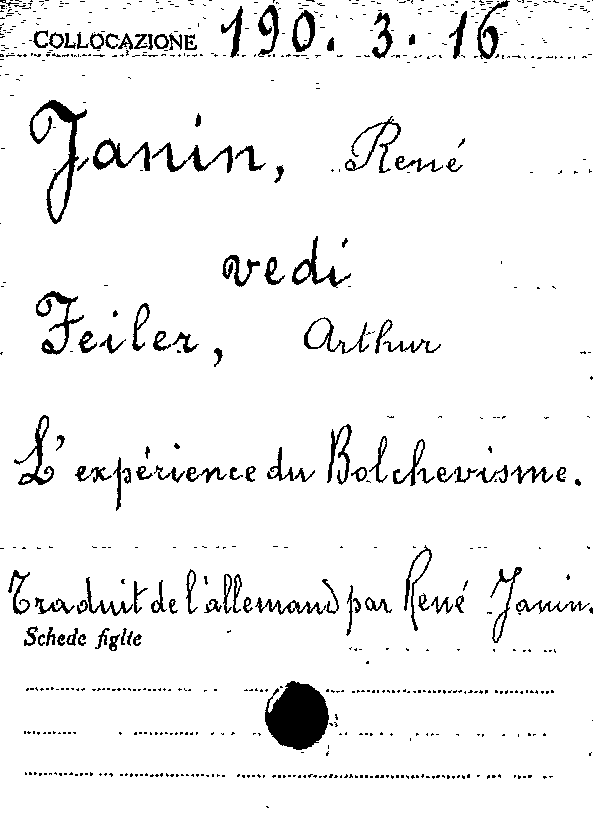 COLLOCAZIONE 190. 3. 16
Janin, René
vedi
Feiler, Arthur
L'expérience du Bolchevisme.
Traduit de l'allemand par René Janin.
Schede figlie